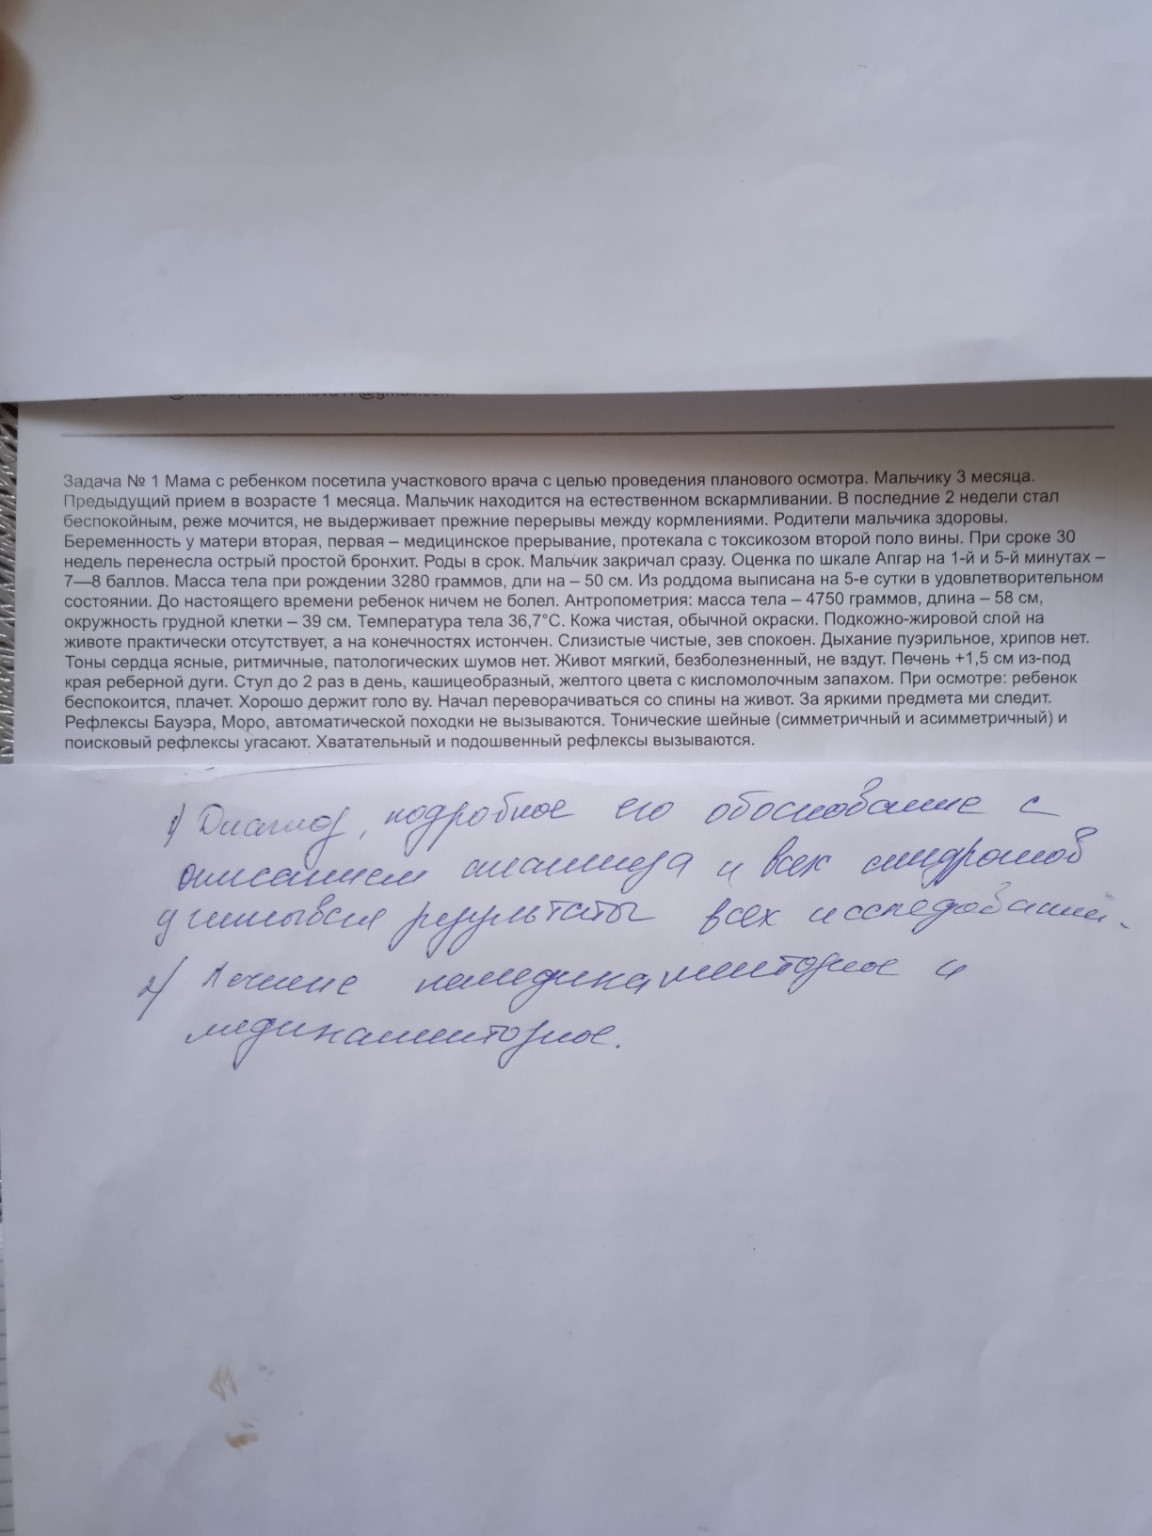 Задача № 1 Мама с ребенком посетила участкового врача с целью проведения планового осмотра. Мальчику 3 месяца.
Предыдущий прием в возрасте 1 месяца. Мальчик находится на естественном вскармливании. В последние 2 недели стал
беспокойным, реже мочится, не выдерживает прежние перерывы между кормлениями. Родители мальчика здоровы.
Беременность у матери вторая, первая – медицинское прерывание, протекала с токсикозом второй поло вины. При сроке 30
недель перенесла острый простой бронхит. Роды в срок. Мальчик закричал сразу. Оценка по шкале Апгар на 1-й и 5-й минутах –
7—8 баллов. Масса тела при рождении 3280 граммов, дли на – 50 см. Из роддома выписана на 5-е сутки в удовлетворительном
состоянии. До настоящего времени ребенок ничем не болел. Антропометрия: масса тела – 4750 граммов, длина – 58 см,
окружность грудной клетки – 39 см. Температура тела 36,7°С. Кожа чистая, обычной окраски. Подкожно-жировой слой на
животе практически отсутствует, а на конечностях истончен. Слизистые чистые, зев спокоен. Дыхание пуэрильное, хрипов нет.
Тоны сердца ясные, ритмичные, патологических шумов нет. Живот мягкий, безболезненный, не вздут. Печень +1,5 см из-под
края реберной дуги. Стул до 2 раз в день, кашицеобразный, желтого цвета с кисломолочным запахом. При осмотре: ребенок
беспокоится, плачет. Хорошо держит голо ву. Начал переворачиваться со спины на живот. За яркими предмета ми следит.
Рефлексы Бауэра, Моро, автоматической походки не вызываются. Тонические шейные (симметричный и асимметричный) и
поисковый рефлексы угасают. Хватательный и подошвенный рефлексы вызываются.
1) Диагноз, подробное его обоснование с
описанием анамнеза и всех синдромов
учитывая результаты всех исследований.
2) Лечение немедикаментозное и
медикаментозное.